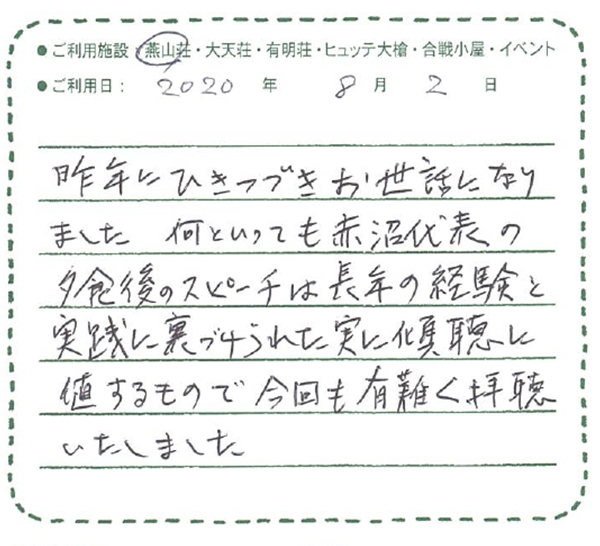 ●ご利用施設:燕山荘・大天荘・有明荘・ヒュッテ大槍・合戦小屋・イベント
●ご利用日: 2020 年 8 月 2 日
昨年にひきつづきお世話になり
ました 何といっても赤沼代表の
夕食後のスピーチは長年の経験と
実践に裏づけられた実に傾聴に
値するもので今回も有難く拝聴
いたしました